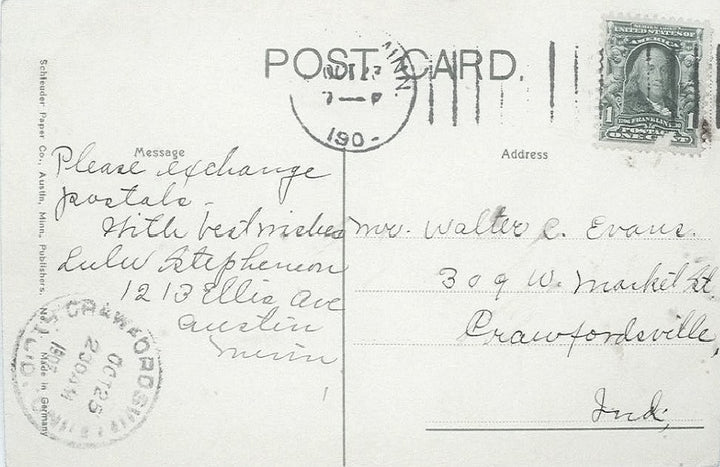 POST CARD.
MINN.
OCT 23
7 — P
190-
SERIES 1902
UNITED STATES OF
AMERICA
1 FRANKLIN 1
POSTAGE
ONE CENT
Message
Address
Please exchange
postals.
With best wishes
Lulu Stephenson
1213 Ellis Ave
Austin
Minn
Mr. Walter C. Evans.
309 W. Market St.
Crawfordsville,
Ind,
Schleuder Paper Co., Austin, Minn. Publishers. No.
Made in Germany
CRAWFORDSVILLE
OCT 25
230AM